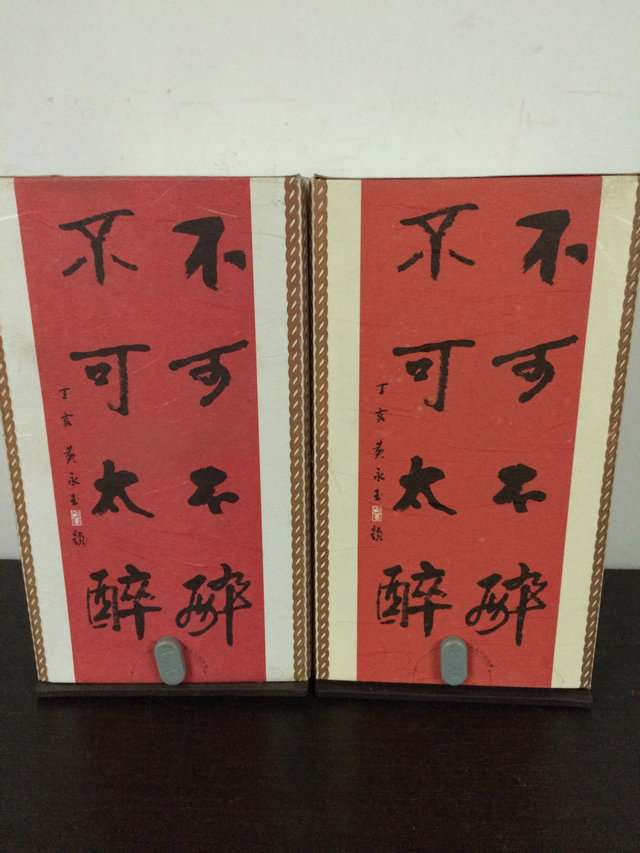 不可不醉
不可太醉
丁亥 黄永玉 题
不可不醉
不可太醉
丁亥 黄永玉 题